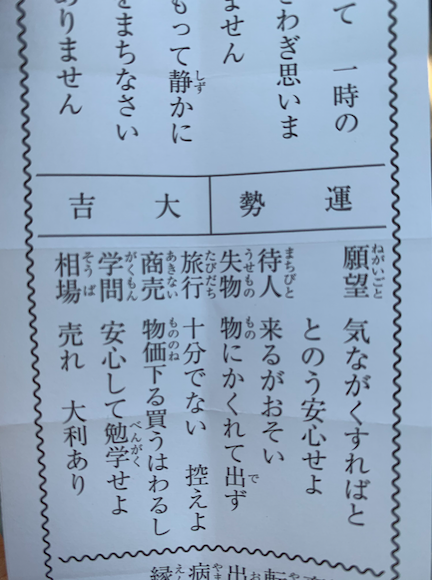 て 一時の
さわぎ思いま
ません
もって静かに
をまちなさい
ありません
運勢 大吉
願望 気ながくすればと
とのう安心せよ
待人 来るがおそい
失物 物にかくれて出ず
旅行 十分でない 控えよ
商売 物価下る買うはわるし
学問 安心して勉学せよ
相場 売れ 大利あり
転
出
病
縁